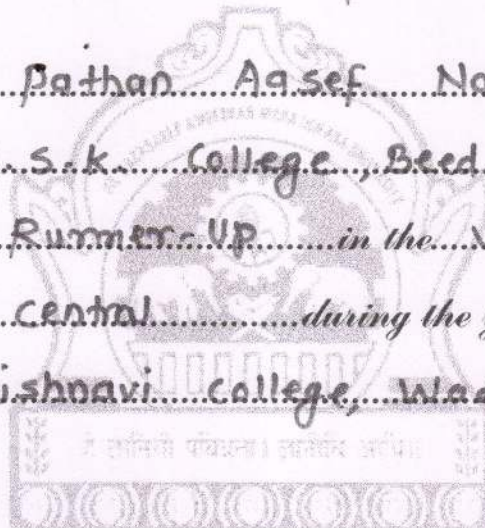 Pathan Aasef No
S.K. College, Beed
Runner-Up in the
Central during the
ishnavi College, Wa